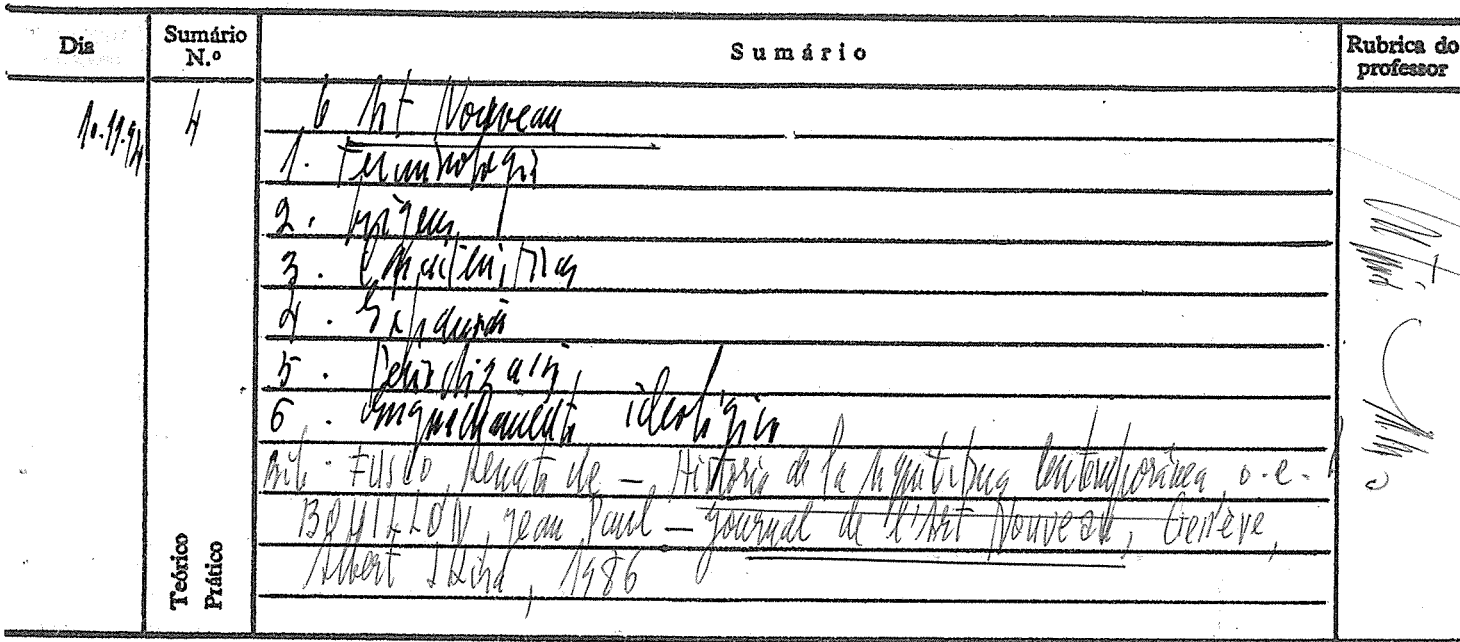 Dia Sumário N.º Sumário Rubrica do professor
10.11.94 4 Art Nouveau
1. Terminologia
2. Origens
3. Características
4.
5. Periodização
6. Enquadramento ideológico
Bib. FUSCO, Renato de — Historia de la Arquitectura Contemporánea o.c.
BOUILLON, Jean Paul — Journal de l'Art Nouveau, Genève,
Albert Skira, 1986
Teórico
Prático